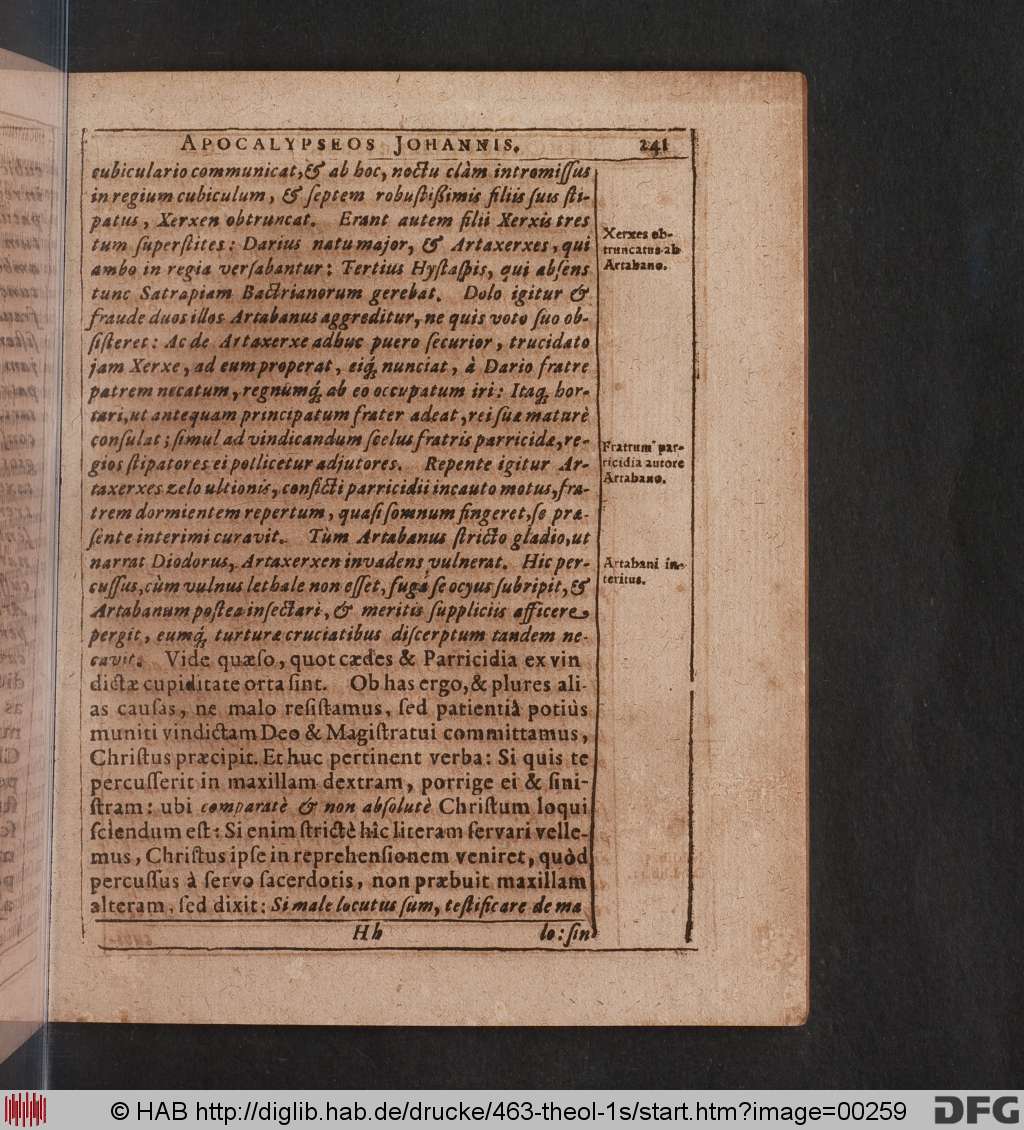 APOCALYPSEOS JOHANNIS. 241
cubiculario communicat, & ab hoc, noctu clàm intromiſſus
in regium cubiculum, & ſeptem robuſtißimis filiis ſuis ſti-
patus, Xerxen obtruncat. Erant autem filii Xerxis tres
tum ſuperſtites: Darius natu major, & Artaxerxes, qui
ambo in regia verſabantur: Tertius Hyſtaſpis, qui abſens
tunc Satrapiam Bactrianorum gerebat. Dolo igitur &
fraude duos illos Artabanus aggreditur, ne quis voto ſuo ob-
ſiſteret: Ac de Artaxerxe adhuc puero ſecurior, trucidato
jam Xerxe, ad eum properat, eiq́; nunciat, à Dario fratre
patrem necatum, regnumq́; ab eo occupatum iri: Itaq; hor-
tari, ut antequam principatum frater adeat, rei ſuæ maturè
conſulat; ſimul ad vindicandum ſcelus fratris parricidæ, re-
gios ſtipatores ei pollicetur adjutores. Repente igitur Ar-
taxerxes zelo ultionis, conficti parricidii incauto motus, fra-
trem dormientem repertum, quaſi ſomnum fingeret, ſe præ-
ſente interimi curavit. Tùm Artabanus ſtricto gladio, ut
narrat Diodorus, Artaxerxen invadens vulnerat. Hic per-
cuſſus, cùm vulnus lethale non eſſet, fugâ ſe ocyus ſubripit, &
Artabanum poſtea inſectari, & meritis ſuppliciis afficere
pergit, eumq́; turturæ cruciatibus diſcerptum tandem ne-
cavit. Vide quæſo, quot cædes & Parricidia ex vin
dictæ cupiditate orta ſint. Ob has ergo, & plures ali-
as cauſas, ne malo reſiſtamus, ſed patientiâ potiùs
muniti vindictam Deo & Magiſtratui committamus,
Chriſtus præcipit. Et huc pertinent verba: Si quis te
percuſſerit in maxillam dextram, porrige ei & ſini-
ſtram: ubi comparatè & non abſolutè Chriſtum loqui
ſciendum eſt: Si enim ſtrictè hîc literam ſervari velle-
mus, Chriſtus ipſe in reprehenſionem veniret, quòd
percuſſus à ſervo ſacerdotis, non præbuit maxillam
alteram, ſed dixit: Si male locutus ſum, teſtificare de ma
Hh lo: ſin
Xerxes ob-
truncatus ab
Artabano.
Fratrum par-
ricidia autore
Artabano.
Artabani in-
teritus.
© HAB http://diglib.hab.de/drucke/463-theol-1s/start.htm?image=00259
DFG